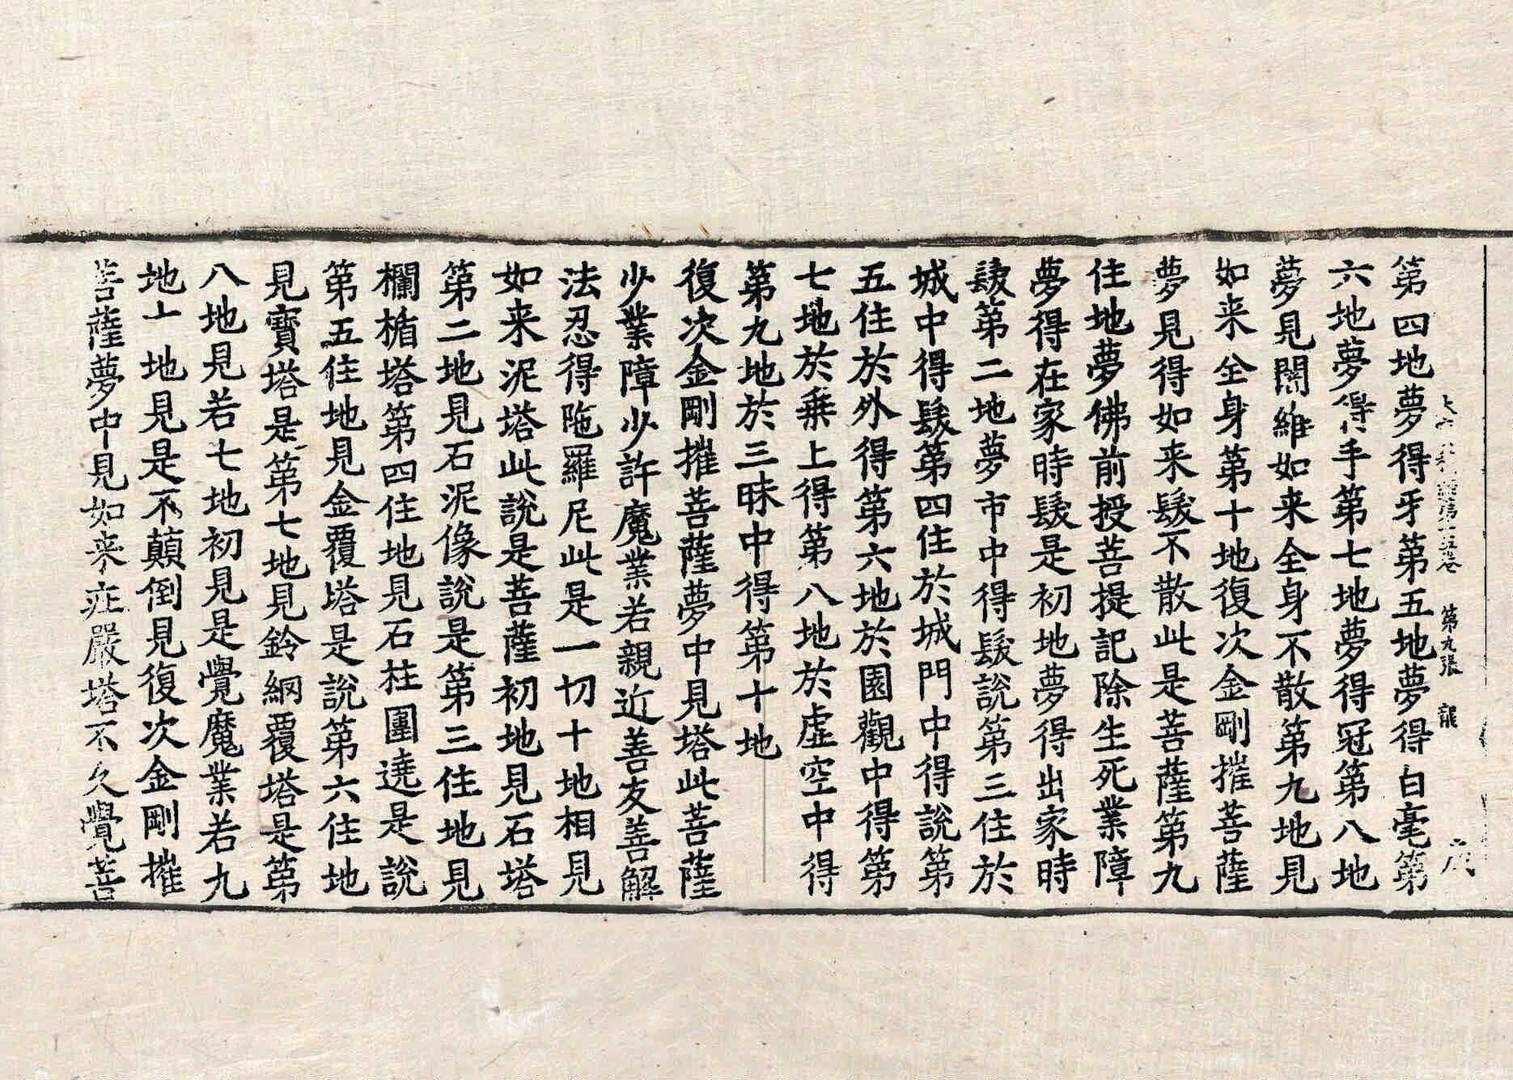 第九張 龍
第四地夢得牙第五地夢得白毫第
六地夢得手第七地夢得冠第八地
夢見闍維如来全身不散第九地見
如来全身第十地復次金剛摧菩薩
夢見得如来髮不散此是菩薩第九
住地夢佛前授菩提記除生死業障
夢得在家時髮是初地夢得出家時
髮第二地夢市中得髮說第三住於
城中得髮第四住於城門中得說第
五住於外得第六地於園觀中得第
七地於乗上得第八地於虛空中得
第九地於三昧中得第十地
復次金剛摧菩薩夢中見塔此菩薩
少業障少許魔業若親近善友善解
法忍得陁羅尼此是一切十地相見
如来泥塔此說是菩薩初地見石塔
第二地見石泥像說是第三住地見
欄楯塔第四住地見石柱圍遶是說
第五住地見金覆塔是說第六住地
見寶塔是第七地見鈴網覆塔是第
八地見若七地初見是覺魔業若九
地十地見是不顛倒見復次金剛摧
菩薩夢中見如来庄嚴塔不久覺菩